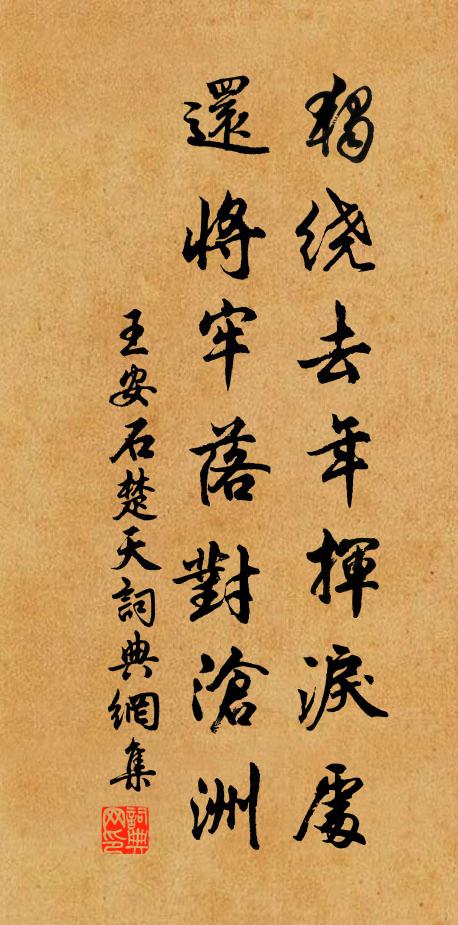 獨绕去年揮淚處
還將牢落對滄洲
王安石楚天詞典網集
詞典网印